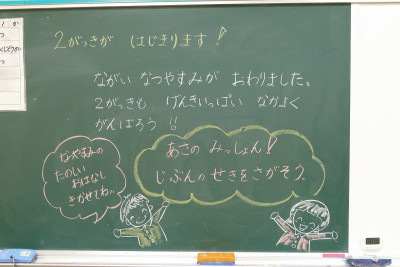 2がっきが はじまります!
ながい なつやすみが おわりました。
2がっきも げんきいっぱい なかよく
がんばろう!!
なつやすみの
たのしい
おはなし
きかせてね。
あさの みっしょん!
じぶんの せきをさがそう。